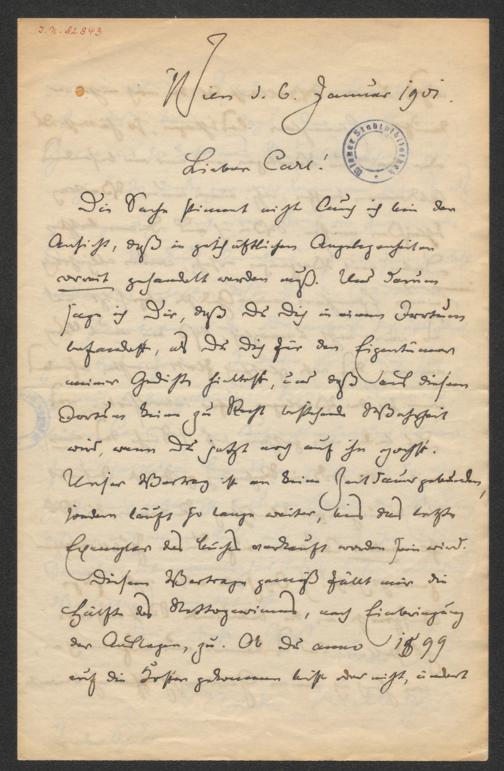 I. N. 82843
Wien d. 6. Januar 1901.
Wiener Stadtbibliothek
Lieber Carl!
Die Sache stimmt nicht. Auch ich bin der
Ansicht, daß in geschäftlichen Angelegenheiten
correct gehandelt werden muß. Und darum
sage ich Dir, daß Du Dich in einem Irrtum
befandest, als Du Dich für den Eigentümer
meiner Gedichte hieltest, und daß aus diesem
Irrtum keine zu Recht bestehende Wahrheit
wird, wenn Du jetzt noch auf ihn pochst.
Unser Vertrag ist an keine Zeitdauer gebunden,
sondern läuft so lange weiter, bis das letzte
Exemplar des Buches verkauft worden sein wird.
Diesem Vertrage gemäß fällt mir die
Hälfte des Nettogewinnes, nach Einbringung
der Auslagen, zu. Ob Du anno 1899
auf die Kosten gekommen bist oder nicht, ändert